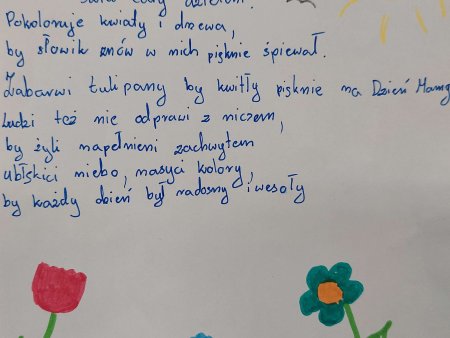 Pokoloruje kwiaty i drzewa,
by słowik znów w nich pięknie śpiewał.
Zabarwi tulipany by kwitły pięknie na Dzień Mamy
Ludzi też nie odprawi z niczem,
by żyli napełnieni zachwytem
ubłękici niebo, nasyci kolory,
by każdy dzień był radosny i wesoły